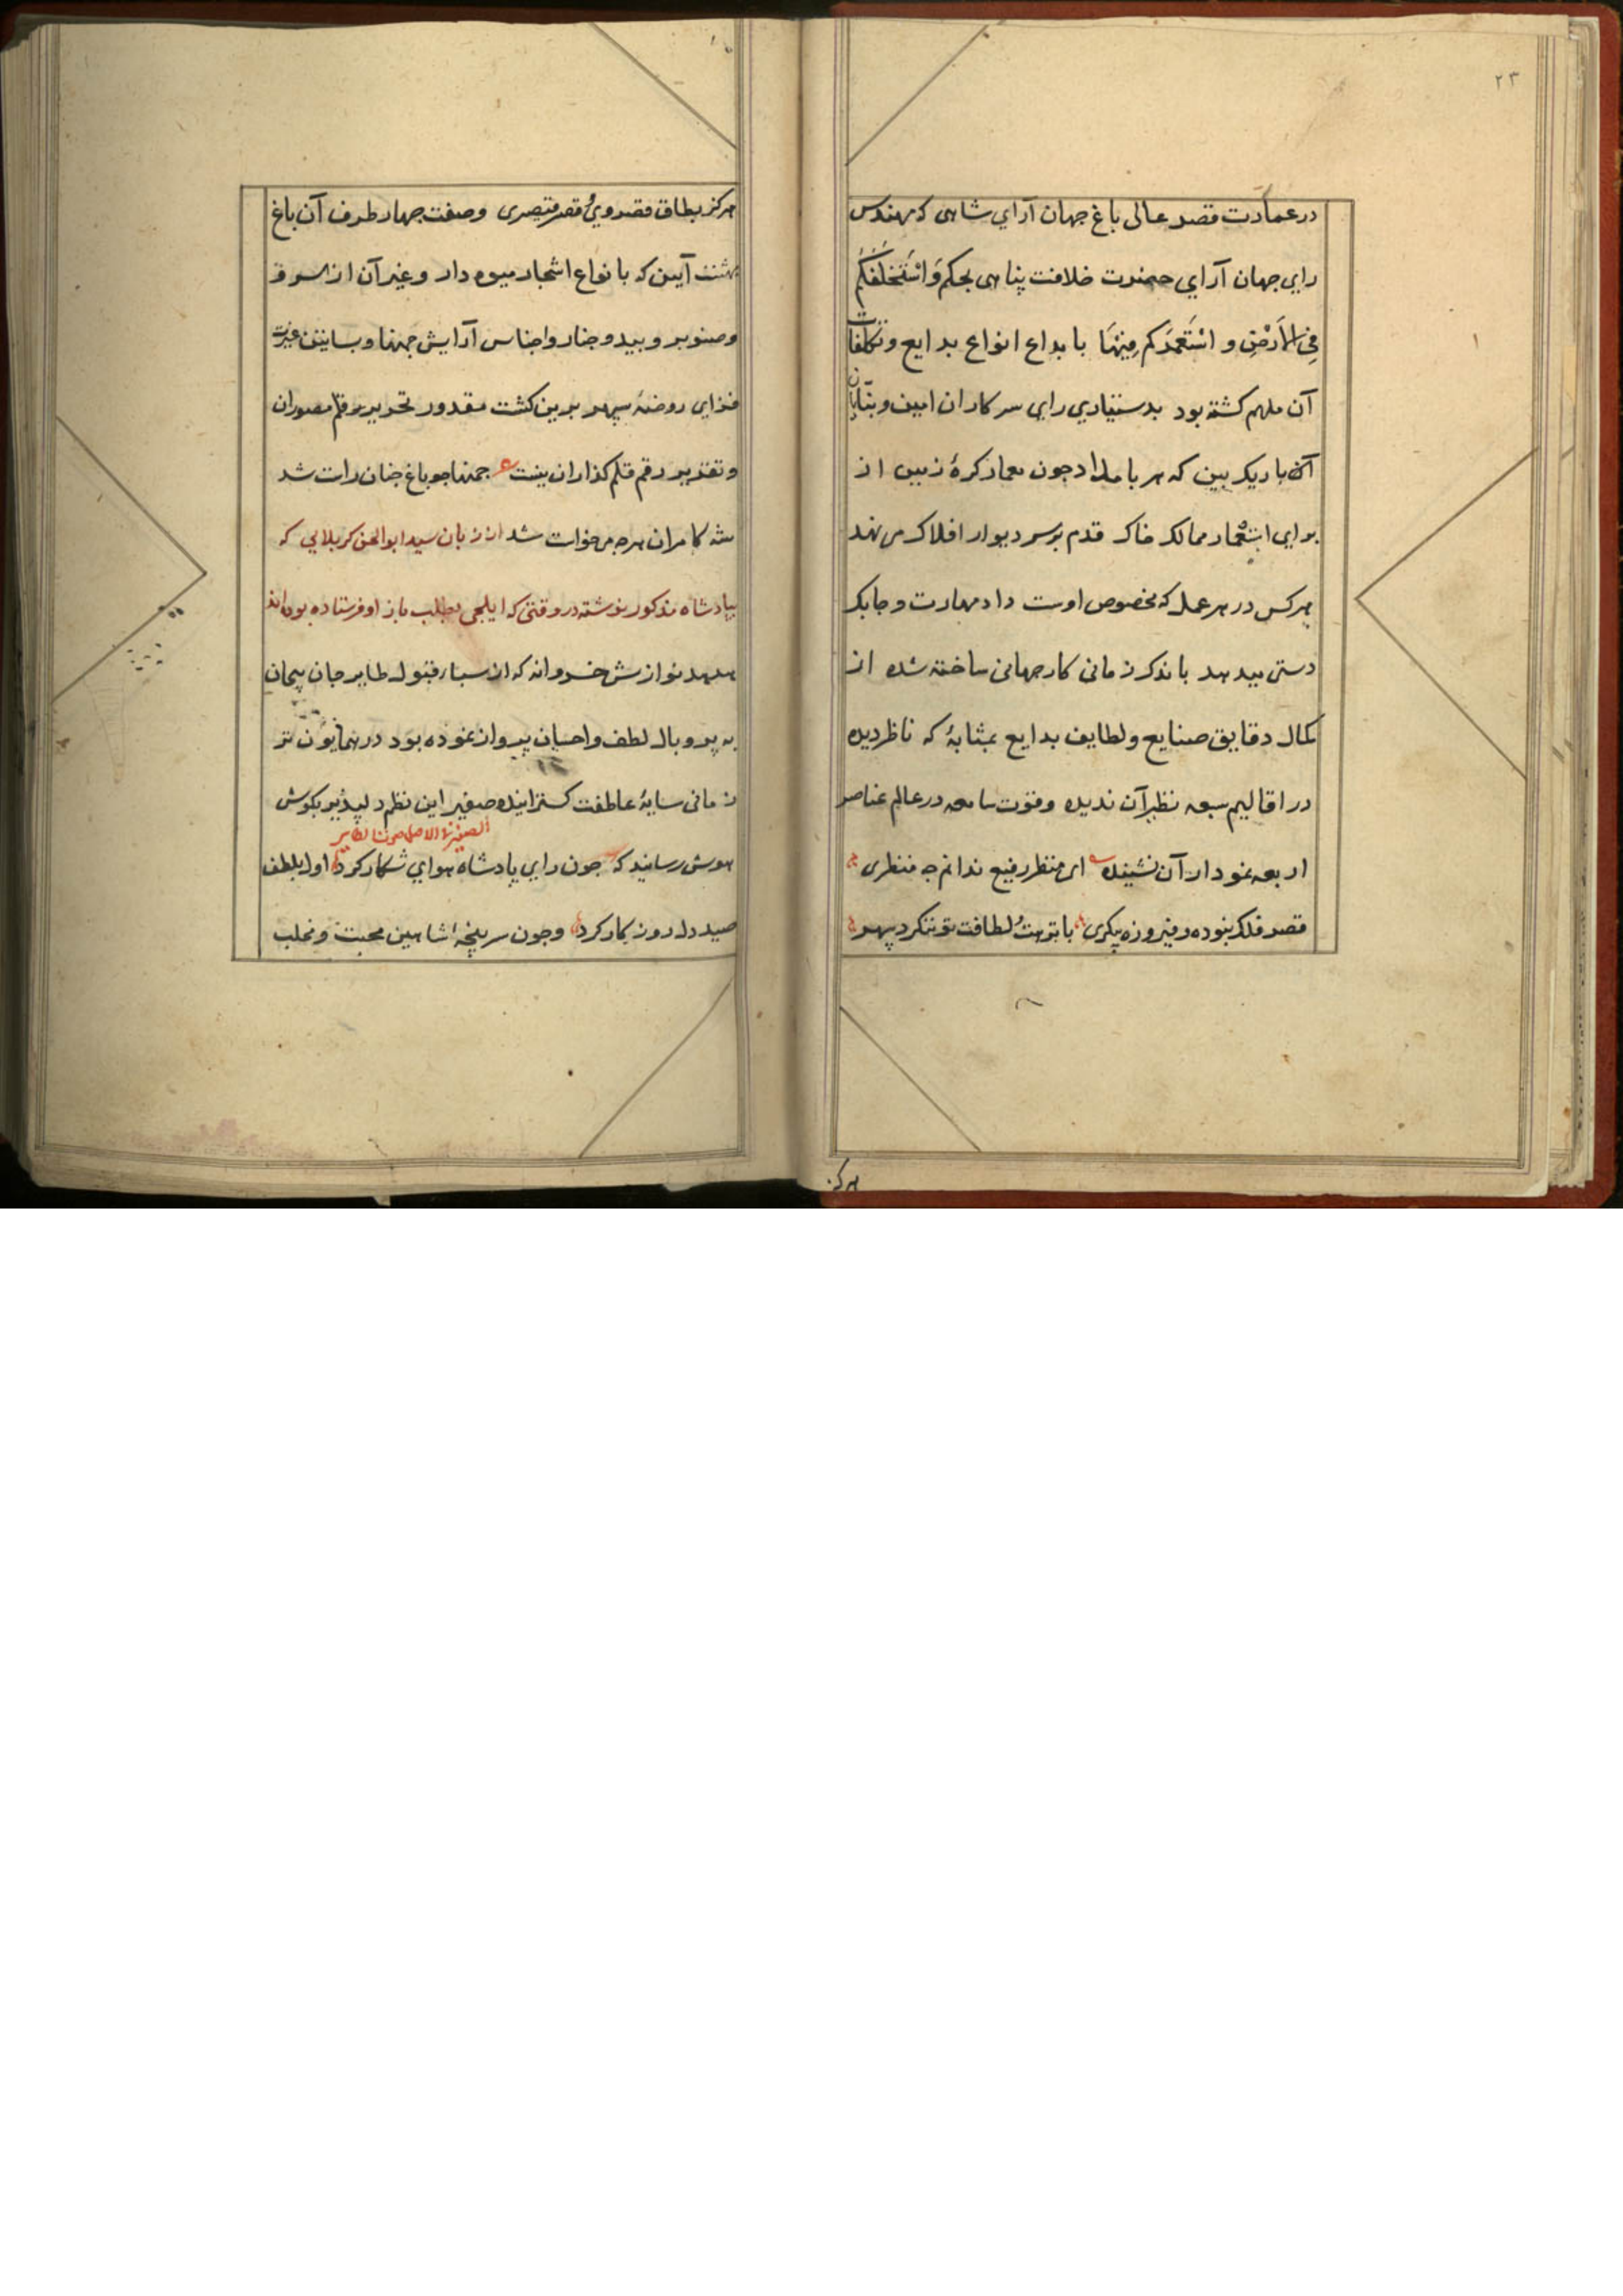 ٢٣
در عمارت قصر عالی باغ جهان آرای شاهی که مهندس
رای جهان آرای حضرت خلافت پناهی بحکم وَاسْتَخْلَفَكُم
فِي الاَرْضِ و اسْتَعْمَرَكم فِيهَا بابداع انواع بدایع و تکلفات
آن ملهم کشته بود بدستیاری رای سرکاران امین و بنّایان
باریک بین که هر بامداد جون معمار کرهٔ زمین از
برای استعمار ممالک خاک قدم برسر دیوار افلاک می نهد
هرکس در هر عمل که مخصوص اوست داد مهارت و جابک
دستی میدهد باندک زمانی کار جهانی ساخته شده از
کمال دقایق صنایع و لطایف بدایع بمثابهٔ که ناظر دیده
در اقالیم سبعه نظیر آن ندیده و قوت سامعه در عالم عناصر
اربعه نمودار آن نشینده ای منظر رفیع ندانم جه منظری
قصر فلک نبوده و فیروزه پیکری با نزهت لطافت تو ننکرد سپهر
هرکز
هرکز بطاق قصر وی قصر قیصری وصفت جهار طرف آن باغ
بهشت آیین که بانواع اشجار میوه دار و غیر آن از سرو
وصنوبر و بید و جنار و اجناس آرایش جمنها و بساتین عبرت
فزای روضهٔ سپهر برین کشت مقدور تحریر رقم مصوران
وتقدیر رقم قلم کذاران نیست ع جمنها جو باغ جنان راست شد
شه کامران هرجه می خواست شد از زبان سید ابوالحسن کربلایی که
بپادشاه مذکور نوشته در وقتی که ایلجی بطلب باز او فرستاده بوده اند
هدهد نوازش خسروانه که از سبا، قبول طایر جان بیجان
به پر و بال لطف و احسان پرواز نموده بود در همایون تر
زمانی سایهٔ عاطفت کسترانیده صفیر این نظم دلپذیر بکوش
هوش رسانید که جون رای پادشاه هوای شکار کرد اول بلطف
صید دل روزکار کرد وجون سر پنجهٔ شاهین محبت و مخلب